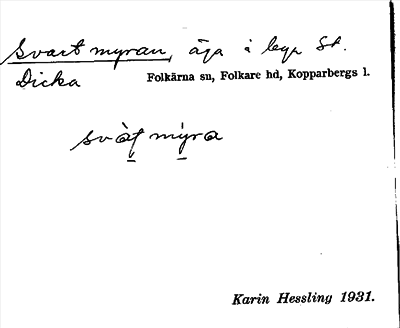 Svartmyran, äga i byn St.
Dicka
Folkärna sn, Folkare hd, Kopparbergs l.
svàt mýra
Karin Hessling 1931.